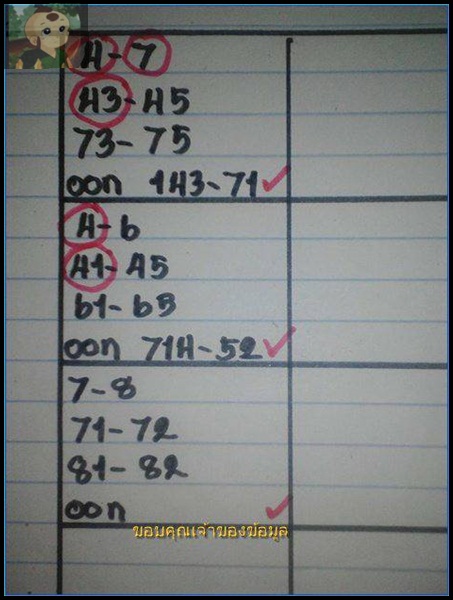 4-7
43-45
73-75
ออก 143-71
4-6
41-45
61-65
ออก 714-52
7-8
71-72
81-82
ออก
ขอบคุณเจ้าของข้อมูล